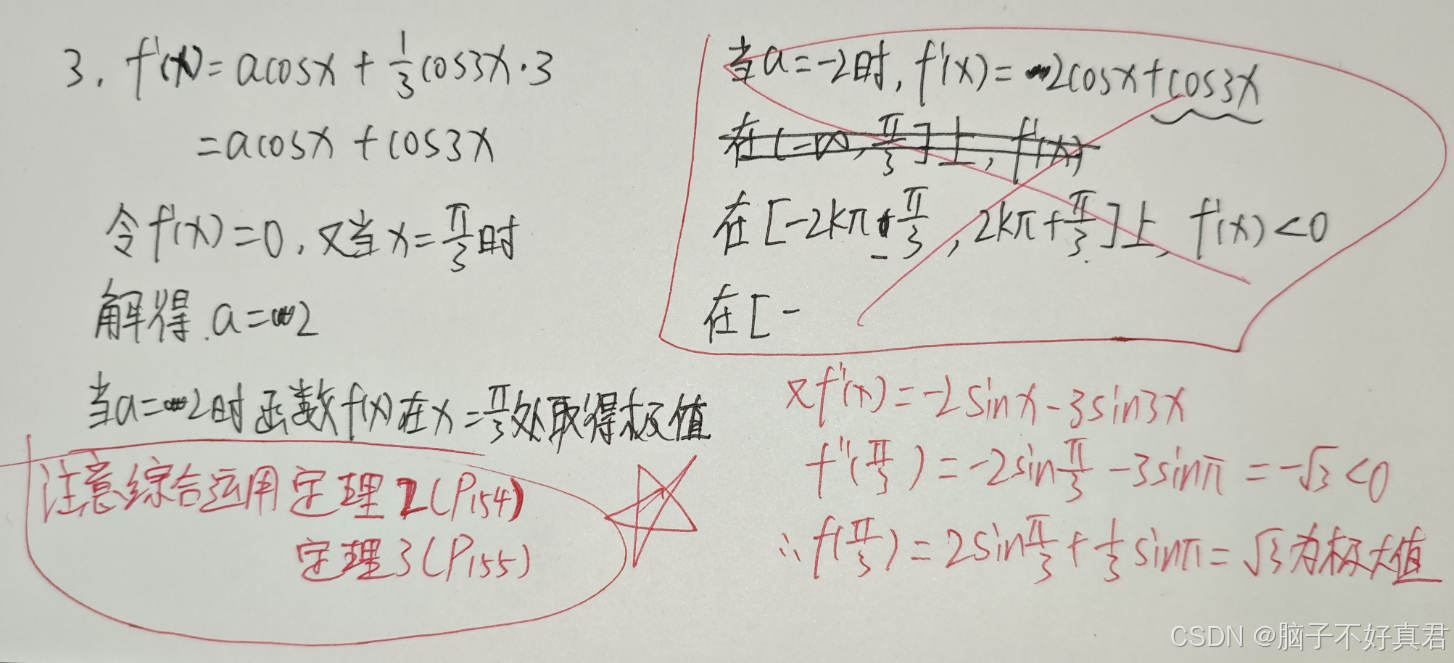 3. f'(x)=acosx+1/3cos3x·3
=acosx+cos3x
令f'(x)=0,又当x=π/3时
解得.a=2
当a=2时函数f(x)在x=π/3处取得极值
注意综合运用定理2(P154)
定理3(P155)
当a=-2时,f'(x)=-2cosx+cos3x
在(-∞,π/3]上,f'(x)
在[-2kπ-π/3,2kπ+π/3]上,f'(x)<0
在[-
又f''(x)=-2sinx-3sin3x
f''(π/3)=-2sinπ/3-3sinπ=-√3<0
∴f(π/3)=2sinπ/3+1/3sinπ=√3为极大值
CSDN @脑子不好真君